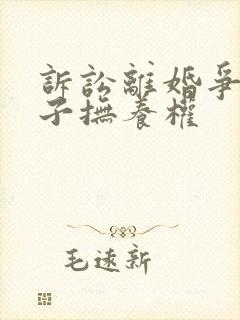 訴訟離婚爭
子撫養權
毛遠新